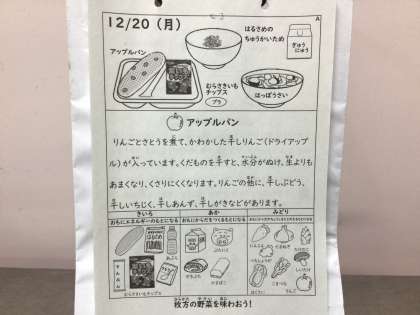 12/20（月）
A
はるさめの
ちゅうかいため
ぎゅう
にゅう
アップルパン
むらさきいも
チップス
プラ
はっぽうさい
アップルパン
りんごとさとうを煮て、かわかした干しりんご（ドライアップ
ル）が入っています。くだものを干すと、水分がぬけ、生よりも
あまくなり、くさりにくくなります。りんごの他に、干しぶどう、
干しいちじく、干しあんず、干しがきなどがあります。
きいろ
あか
みどり
おもにエネルギーのもとになる
おもにからだをつくるもとになる
むらさきいもチップス
ぶたにく
はくさい
こまつな
りんご
枚方の野菜を味わおう！